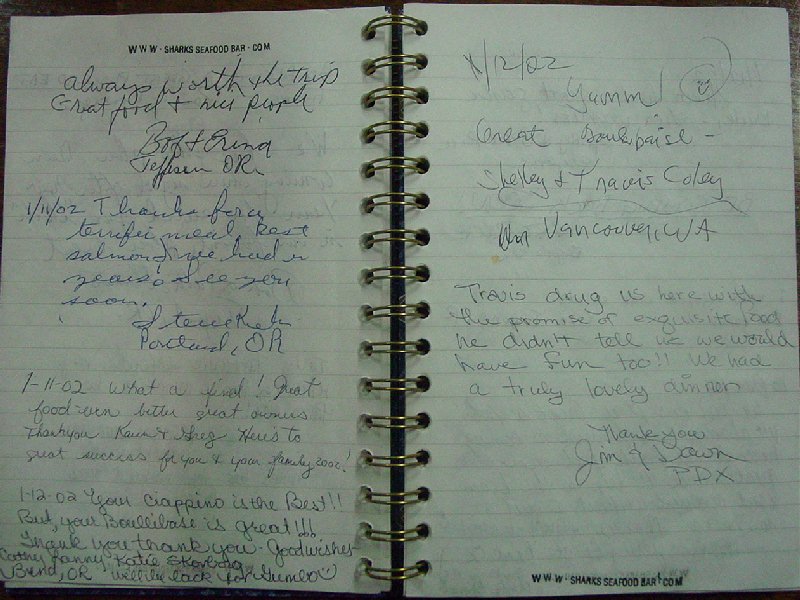 WWW · SHARKS SEAFOOD BAR · COM
always worth the trip
Great food + nice people
Bob +
Jefferson OR.
1/11/02 Thanks for a
terrific meal. Best
salmon we had in
years! See you
soon.
Steve
Portland, OR
1-11-02 What a find! Great
food-even better great owners
Thankyou Karen & Greg Here's to
great success for you & your family 2002!
1-12-02 Your Ciappino is the Best!!
But, your Boullibase is great!!!
Thank you thank you - Goodwishes
Cathy Kanny, Katie
Bend, OR will be back for Gumbo
1/12/02
Yumm!
Great -
Shelley & Travis Coley
Vancouver, WA
Travis drug us here with
the promise of exquisite food
he didn't tell us we would
have fun too!! We had
a truly lovely dinner
Thank you
Jim & Dawn
PDX
WWW · SHARKS SEAFOOD BAR · COM